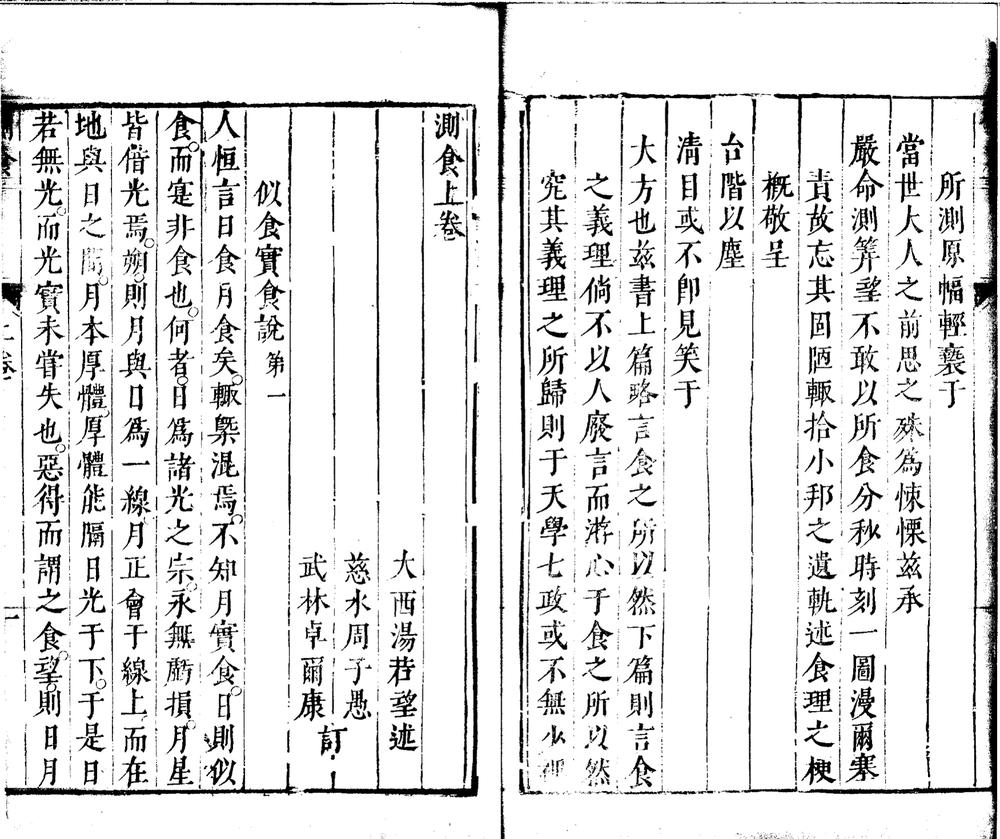 所測原幅輕褻于
當世大人之前思之殊爲悚慄茲承
嚴命測筭望不敢以所食分秒時刻一圖漫爾塞
責故忘其固陋輙拾小邦之遺軌述食理之梗
槪敬呈
台階以塵
淸目或不卽見笑于
大方也茲書上篇略言食之所以然下篇則言食
之義理倘不以人廢言而游心于食之所以然
究其義理之所歸則于天學七政或不無少裨
測食上卷
大西湯若望述
慈水周子愚
武林卓爾康
訂
似食實食說第一
人恒言日食月食矣輙槩混焉不知月實食日則似
食而寔非食也何者日爲諸光之宗永無虧損月星
皆借光焉朔則月與日爲一線月正會于線上而在
地與日之間月本厚體厚體能隔日光于下于是日
若無光而光實未嘗失也惡得而謂之食望則日月
上卷
一